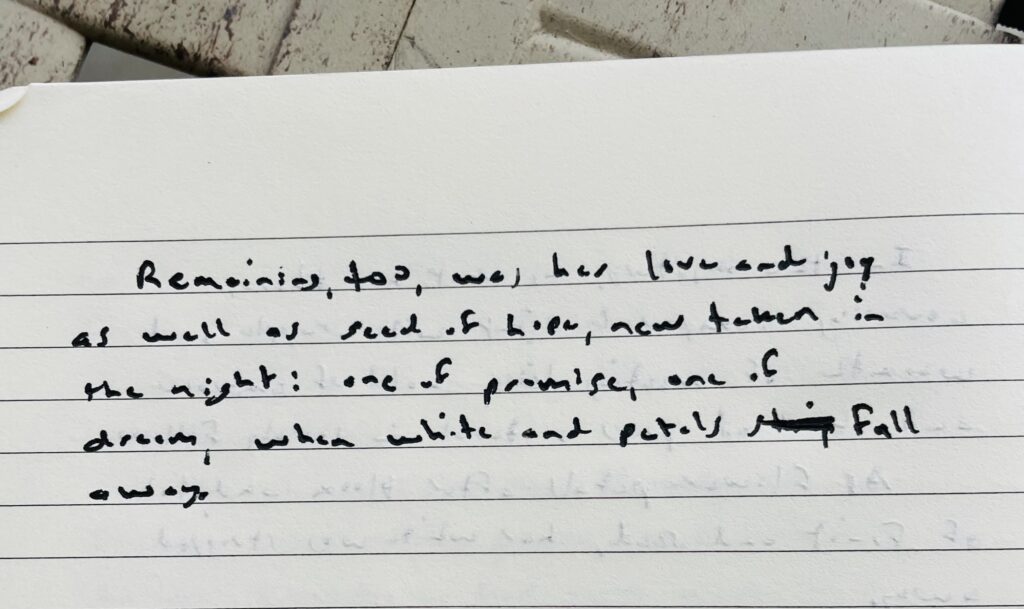 Remaining, too, was her love and joy
as well as seed of hope, new taken in
the night: one of promise, one of
dream, when white and petals fall
away.